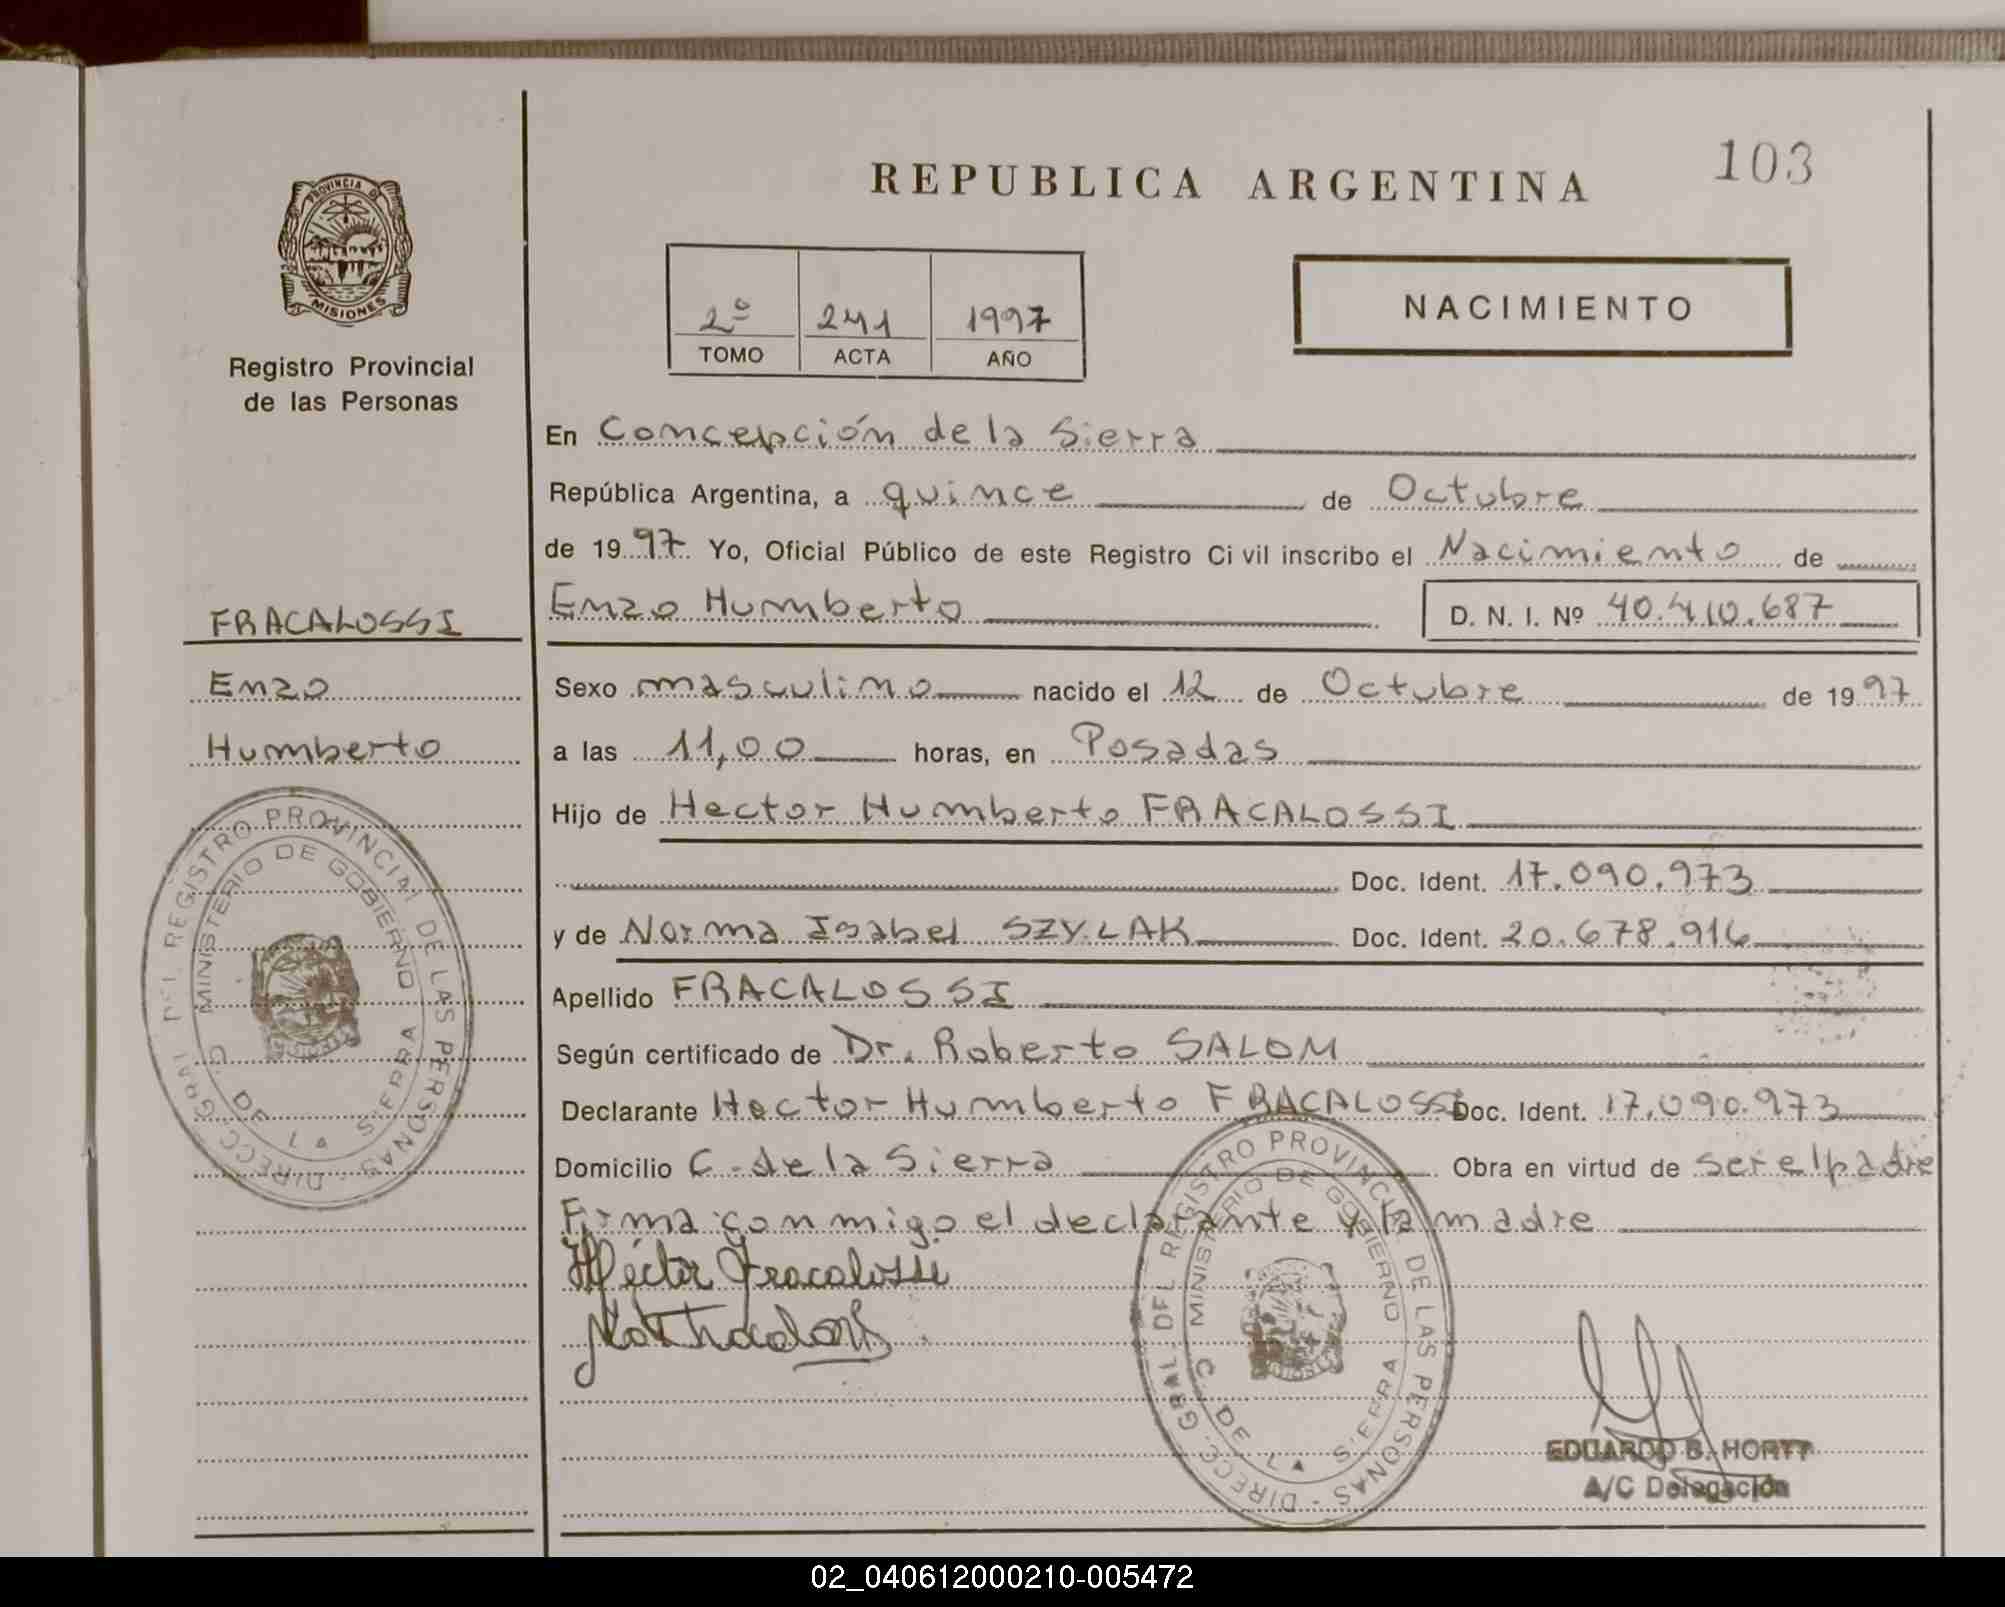 103
REPUBLICA ARGENTINA
PROVINCIA DE
MISIONES
Registro Provincial
de las Personas
2º 241 1997
TOMO ACTA AÑO
NACIMIENTO
En Concepción de la Sierra
República Argentina, a quince de Octubre
de 1997 Yo, Oficial Público de este Registro Civil inscribo el Nacimiento de
Enzo Humberto D. N. I. Nº 40.410.687
FRACALOSSI
Enzo
Humberto
Sexo masculino nacido el 12 de Octubre de 1997
a las 11,00 horas, en Posadas
Hijo de Hector Humberto FRACALOSSI
Doc. Ident. 17.090.973
y de Norma Isabel SZYLAK Doc. Ident. 20.678.916
Apellido FRACALOSSI
Según certificado de Dr. Roberto SALOM
Declarante Hector Humberto FRACALOSSI Doc. Ident. 17.090.973
Domicilio C. de la Sierra Obra en virtud de ser el padre
Firma conmigo el declarante y la madre
Héctor Fracalossi
DIRECC. GRAL. DEL REGISTRO PROVINCIAL DE LAS PERSONAS
MINISTERIO DE GOBIERNO
C. DE LA SIERRA
DIRECC. GRAL. DEL REGISTRO PROVINCIAL DE LAS PERSONAS
MINISTERIO DE GOBIERNO
C. DE LA SIERRA
EDUARDO B. HORTT
A/C Delegación
02_040612000210-005472